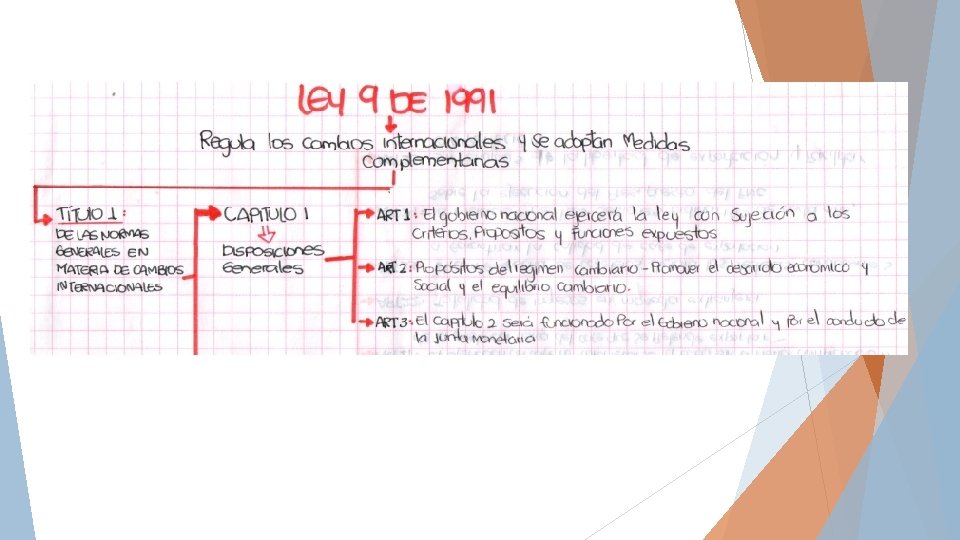 LEY 9 DE 1991
Regula los cambios internacionales y se adoptan Medidas
complementarias
TÍTULO 1:
DE LAS NORMAS
GENERALES EN
MATERIA DE CAMBIOS
INTERNACIONALES
CAPITULO 1
DISPOSICIONES
Generales
ART 1: El gobierno nacional ejercerá la ley con sujeción a los
Criterios, Propositos y funciones expuestos
ART 2: Propósitos del regimen cambiario - Promover el desarrollo económico y
Social y el equilibrio cambiario.
ART 3: El Capitulo 2 Será funcionado Por el Gobierno nacional y Por el conducto de
la junta Monetaria